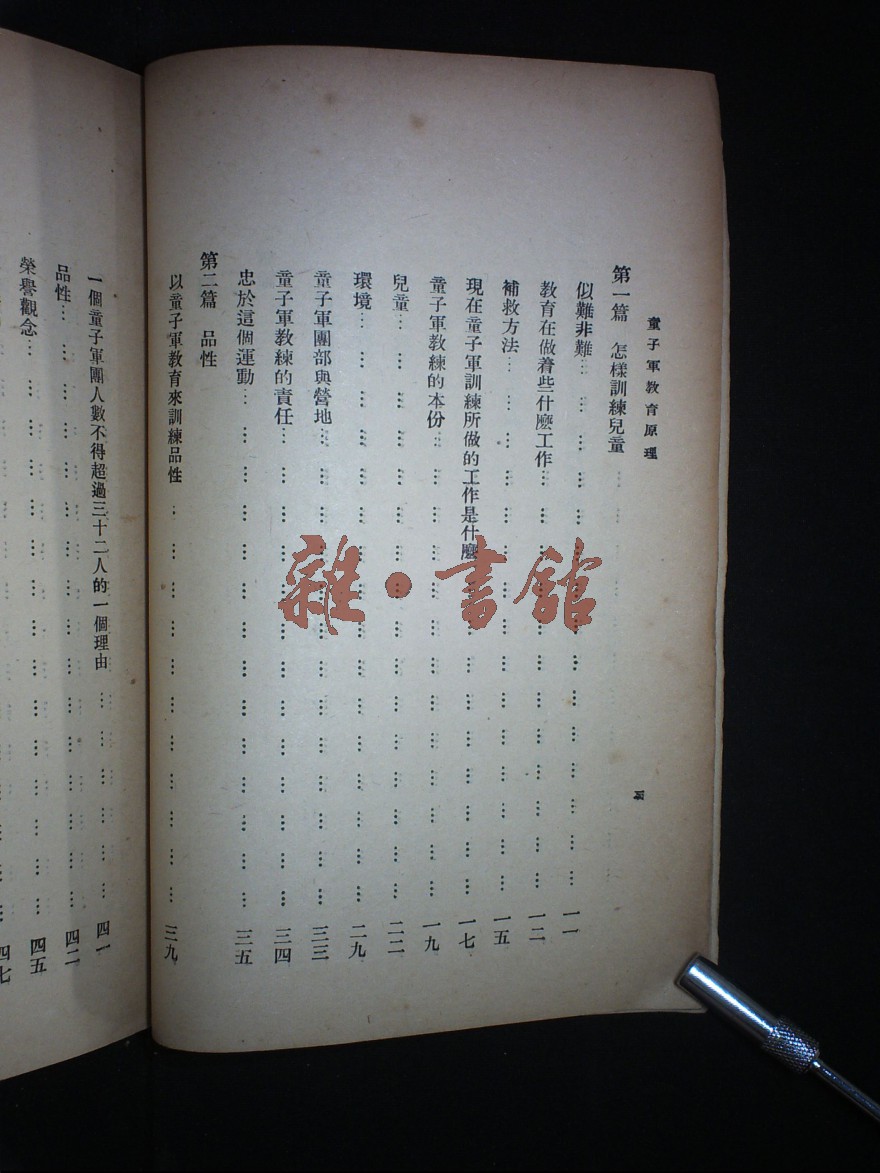 童子軍教育原理
第一篇 怎樣訓練兒童
似難非難…………………………一一
教育在做着些什麼工作…………………………一二
補救方法…………………………一五
現在童子軍訓練所做的工作是什麼…………………………一七
童子軍教練的本份…………………………一九
兒童…………………………二二
環境…………………………二九
童子軍團部與營地…………………………三三
童子軍教練的責任…………………………三四
忠於這個運動…………………………三五
第二篇 品性
以童子軍教育來訓練品性…………………………三九
一個童子軍團人數不得超過三十二人的一個理由…………………………四一
品性…………………………四二
榮譽觀念…………………………四五
四七
雜·書館